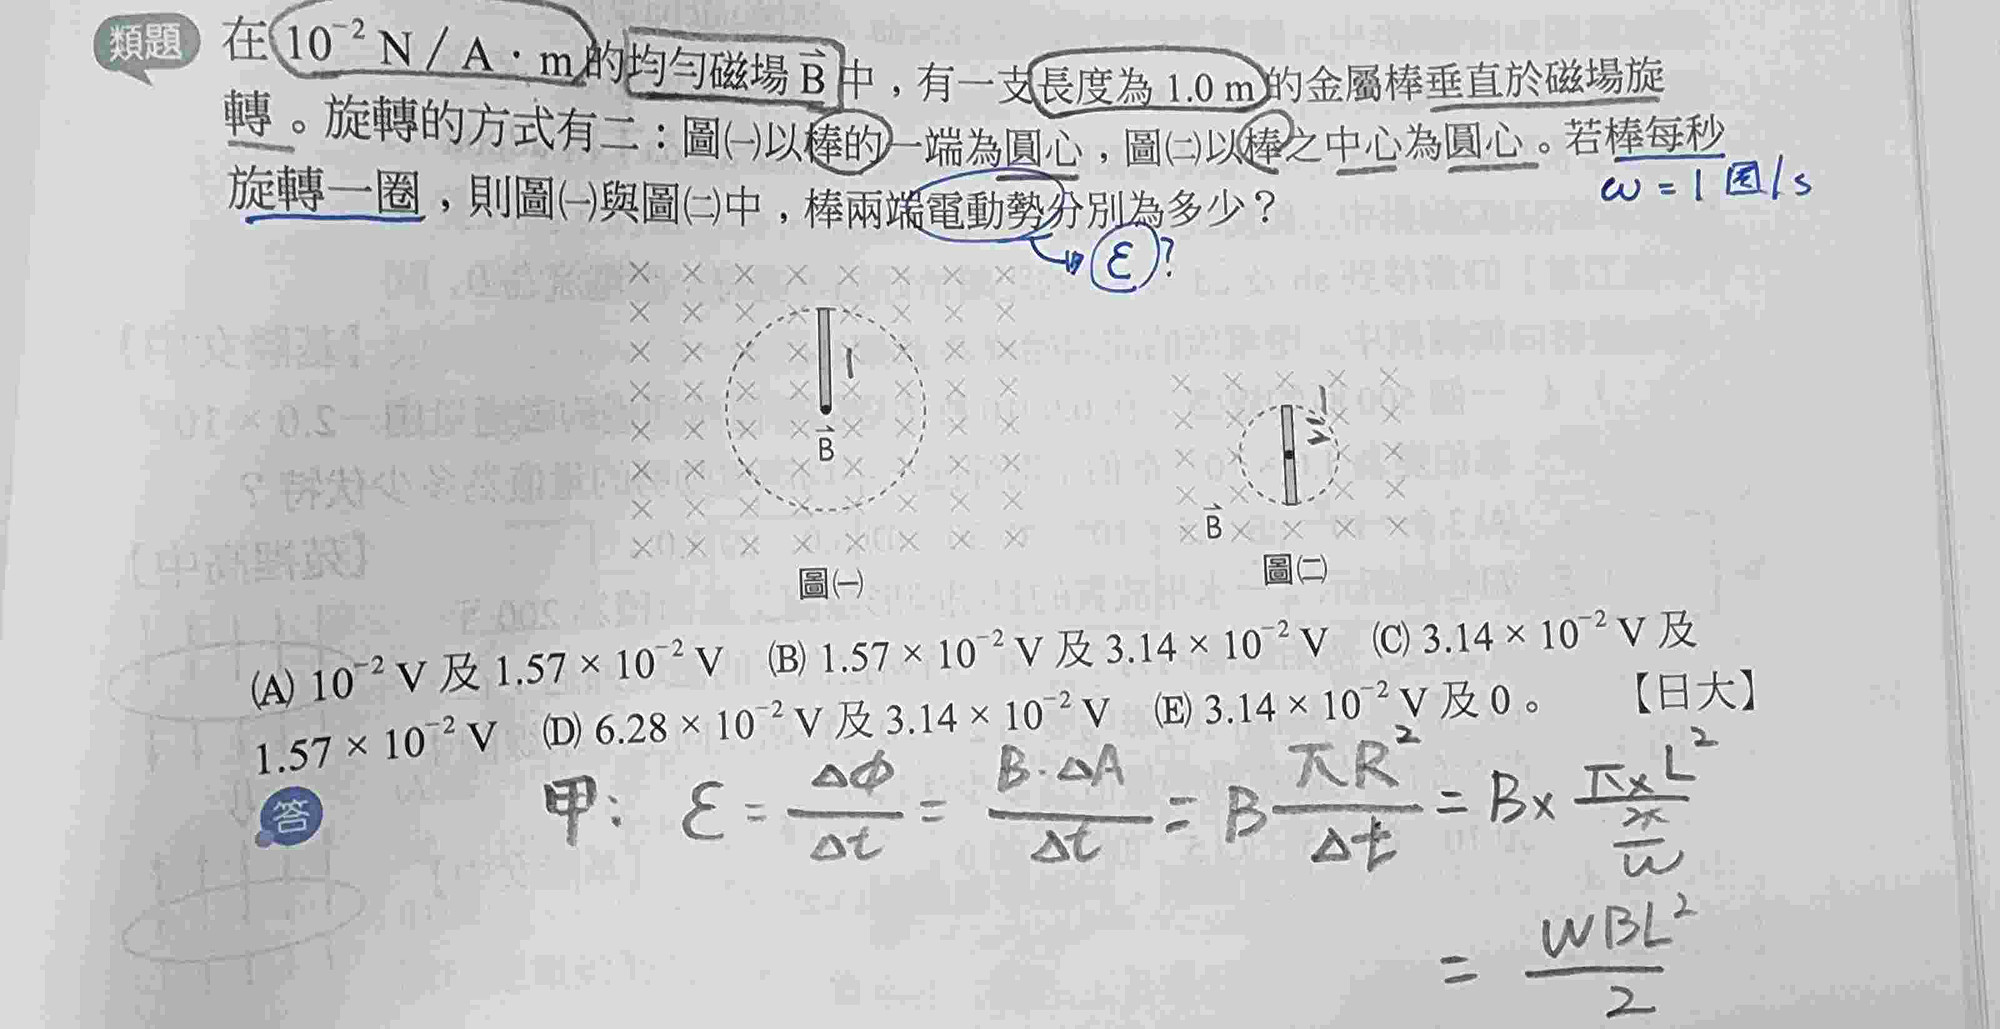 類題 在 10⁻² N / A · m 的均勻磁場 B⃗ 中，有一支長度為 1.0 m 的金屬棒垂直於磁場旋
轉。旋轉的方式有二：圖㈠以棒的一端為圓心，圖㈡以棒之中心為圓心。若棒每秒
旋轉一圈，則圖㈠與圖㈡中，棒兩端電動勢分別為多少？
ω = 1 圈/s
ε ?
1
B⃗
圖㈠
1/2
B⃗
圖㈡
(A) 10⁻² V 及 1.57 × 10⁻² V (B) 1.57 × 10⁻² V 及 3.14 × 10⁻² V (C) 3.14 × 10⁻² V 及
1.57 × 10⁻² V (D) 6.28 × 10⁻² V 及 3.14 × 10⁻² V (E) 3.14 × 10⁻² V 及 0。 【日大】
答
甲： ε = Δϕ/Δt = B·ΔA/Δt = B πR²/Δt = B×
= WBL²/2